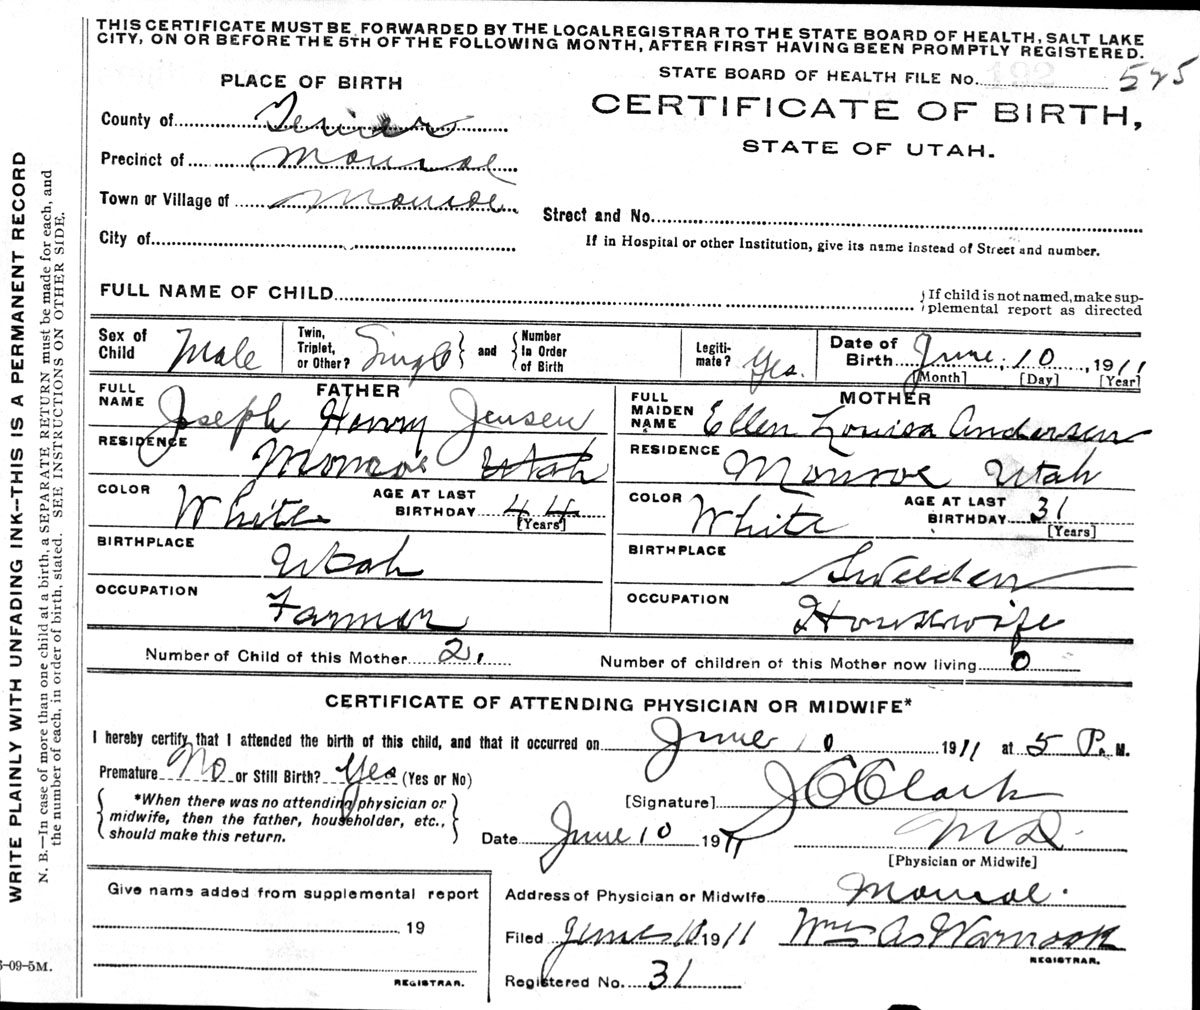 THIS CERTIFICATE MUST BE FORWARDED BY THE LOCAL REGISTRAR TO THE STATE BOARD OF HEALTH, SALT LAKE
CITY, ON OR BEFORE THE 5TH OF THE FOLLOWING MONTH, AFTER FIRST HAVING BEEN PROMPTLY REGISTERED.
STATE BOARD OF HEALTH FILE No. 192 525
PLACE OF BIRTH
CERTIFICATE OF BIRTH,
STATE OF UTAH.
County of
Precinct of Monroe
Town or Village of Monroe
Street and No.
City of
If in Hospital or other Institution, give its name instead of Street and number.
FULL NAME OF CHILD
If child is not named, make sup-
plemental report as directed
Sex of Child Male
Twin, Triplet, or Other? Single and Number In Order of Birth
Legiti-mate? Yes.
Date of Birth June 10, 1911
[Month] [Day] [Year]
FATHER
FULL NAME Joseph Henry Jensen
RESIDENCE Monroe Utah
COLOR White AGE AT LAST BIRTHDAY 44
[Years]
BIRTHPLACE Utah
OCCUPATION Farmer
MOTHER
FULL MAIDEN NAME Ellen Louisa Andersen
RESIDENCE Monroe Utah
COLOR White AGE AT LAST BIRTHDAY 31
[Years]
BIRTHPLACE Sweeden
OCCUPATION Housewife
Number of Child of this Mother 2. Number of children of this Mother now living 0
CERTIFICATE OF ATTENDING PHYSICIAN OR MIDWIFE*
I hereby certify that I attended the birth of this child, and that it occurred on June 10 1911 at 5 P. M.
Premature No or Still Birth? Yes (Yes or No)
*When there was no attending physician or
midwife, then the father, householder, etc.,
should make this return.
[Signature] J C Clark
Date June 10 1911 M D.
[Physician or Midwife]
Give name added from supplemental report
19
REGISTRAR.
Address of Physician or Midwife Monroe.
Filed June 10 1911 Wm A Warnock
REGISTRAR.
Registered No. 31
WRITE PLAINLY WITH UNFADING INK--THIS IS A PERMANENT RECORD
N. B.—In case of more than one child at a birth, a SEPARATE RETURN must be made for each, and
the number of each, in order of birth, stated. SEE INSTRUCTIONS ON OTHER SIDE.
-09-5M.